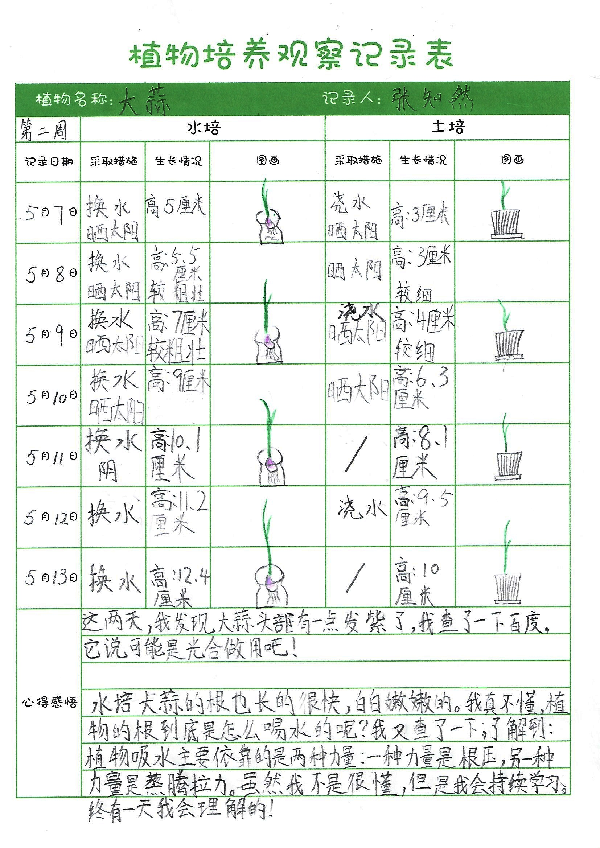 植物培养观察记录表
植物名称:大蒜 记录人:张知然
第二周 水培 土培
记录日期 采取措施 生长情况 图画 采取措施 生长情况 图画
5月7日 换水 晒太阳 高5厘米 浇水 晒太阳 高:3厘米
5月8日 换水 晒太阳 高:5.5厘米 较粗壮 晒太阳 高:3厘米 较细
5月9日 换水 晒太阳 高:7厘米 较粗壮 浇水 晒太阳 高:4厘米 较细
5月10日 换水 晒太阳 高:9厘米 晒太阳 高:6.3厘米
5月11日 换水 阴 高:10.1厘米 / 高:8.1厘米
5月12日 换水 高:11.2厘米 浇水 高:9.5厘米
5月13日 换水 高:12.4厘米 / 高:10厘米
心得感悟
这两天,我发现大蒜头部有一点发紫了,我查了一下百度。
它说可能是光合做用吧!
水培大蒜的根也长的很快,白白嫩嫩的。我真不懂,植
物的根到底是怎么喝水的呢?我又查了一下;了解到:
植物吸水主要依靠的是两种力量:一种力量是根压,另一种
力量是蒸腾拉力。虽然我不是很懂,但是我会持续学习。
终有一天我会理解的!